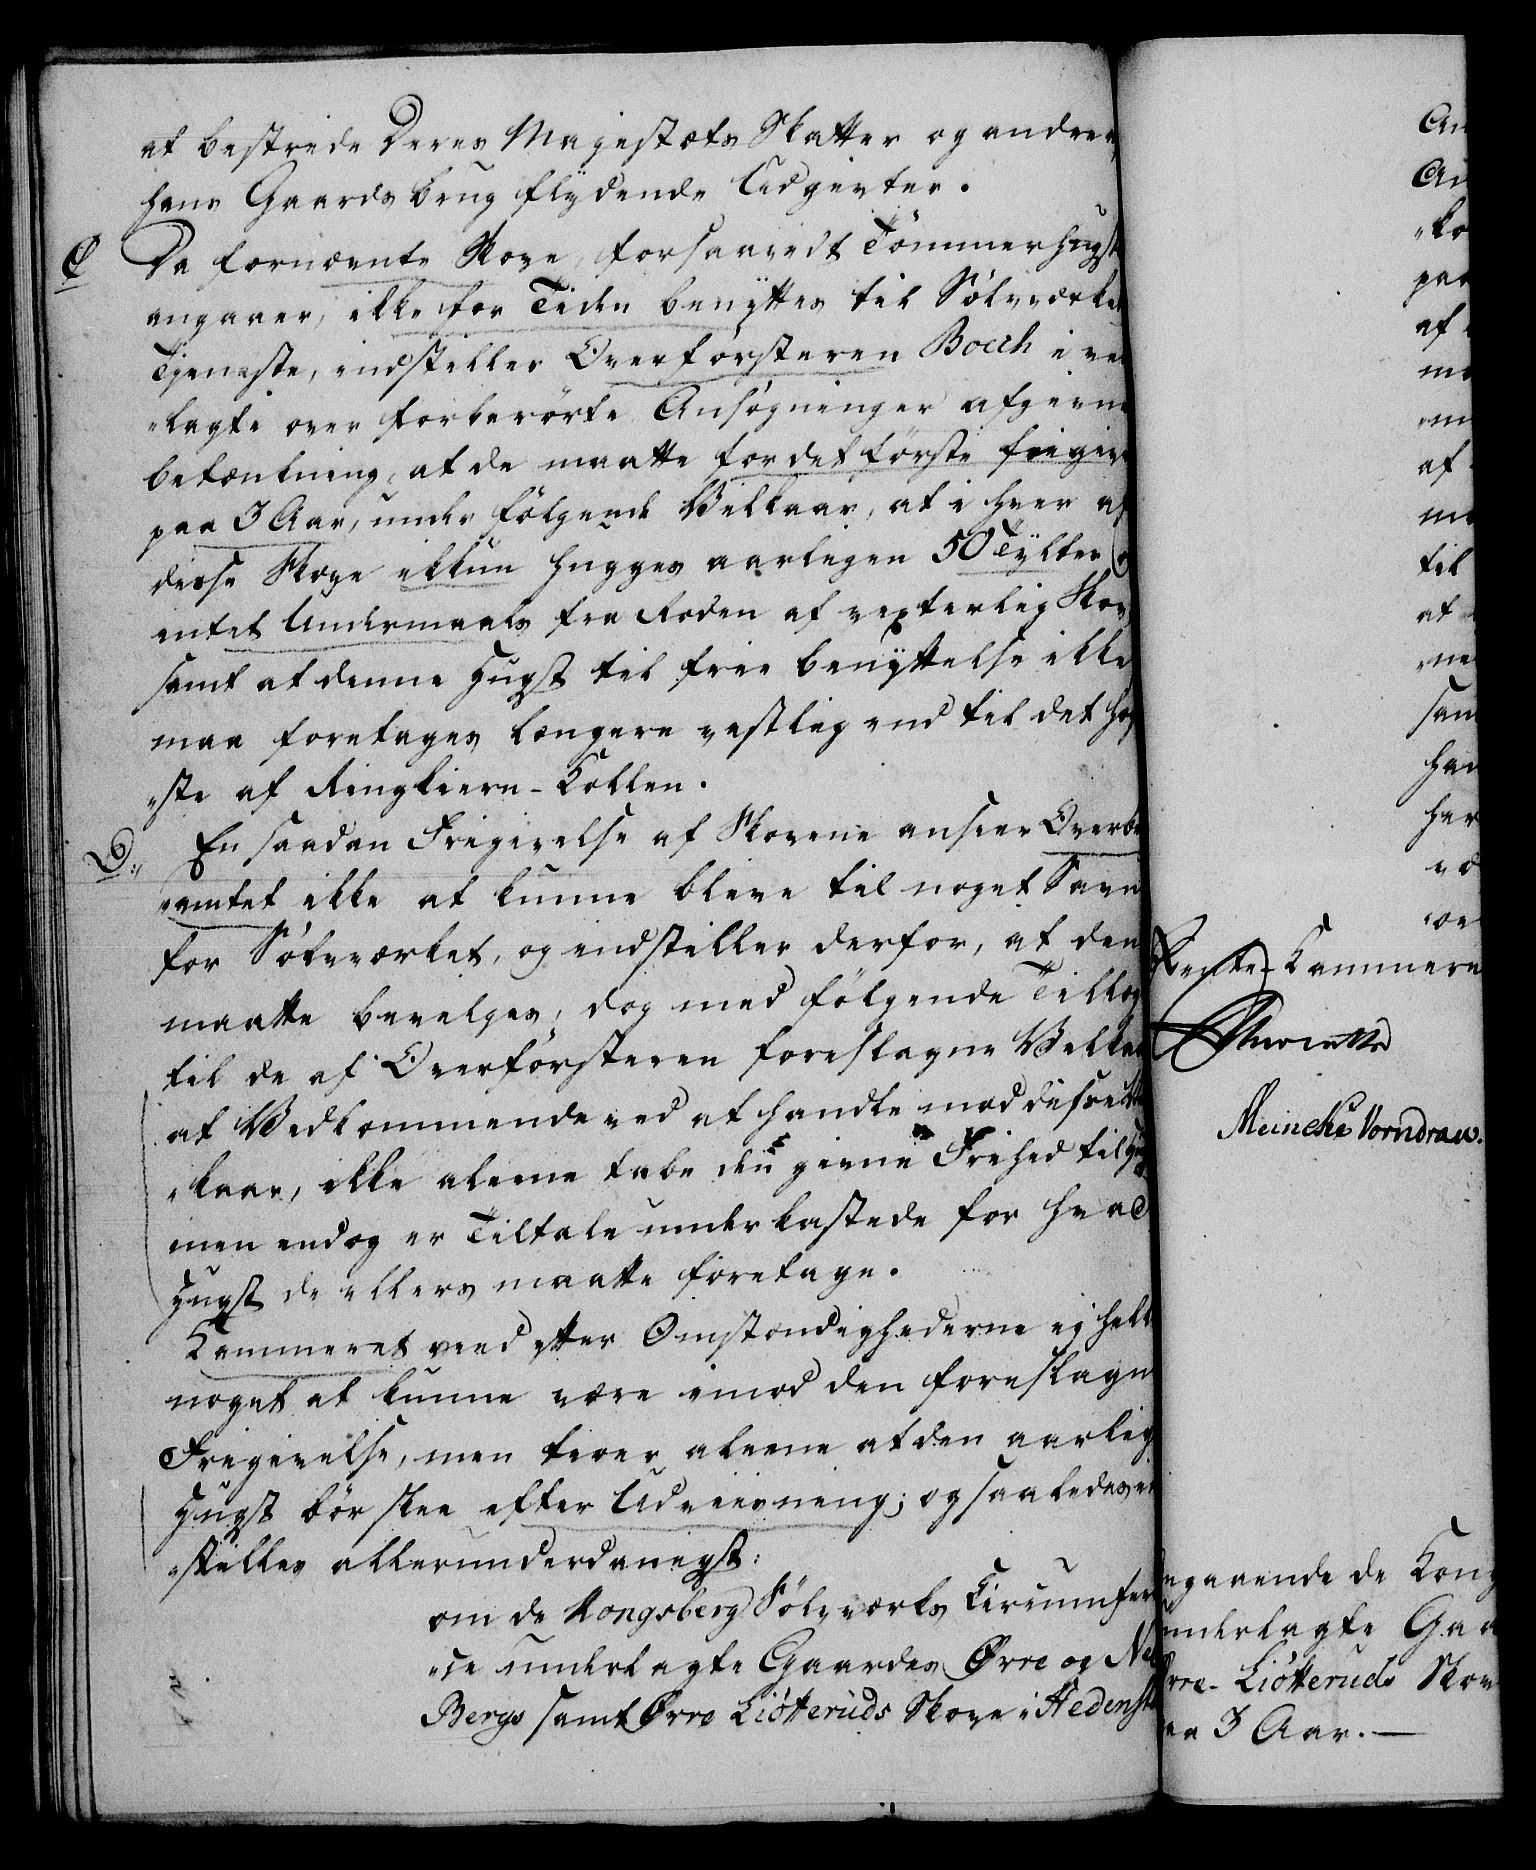 at bestride Deres Majestæts Skatter og andre
hans Gaards brug flydende Udgivter.
C
Da fornævnte Skove, forsaavidt Tömmerhugst
angaaer, ikke for Tiden benyttes til Sølvværkets
Tjeneste, indstiller Overforsteren Boeck i ved
„lagte over forberörte Ansøgninger afgivne
betænkning, at de maatte for det förste frigives
paa 3 Aar, under følgende Vilkaar, at i hver af
disse Skove ikkun hugges aarligen 50 Tylter
intet Undermaals fra Roden af vexterlig Skov
samt at denne Hugst til frie benyttelse ikke
maa foretages længere vestlig end til det høy
„ste af Ringkiern-Kollen.
D:
En saadan Frigivelse af Skovene anseer Overbe
„amtet ikke at kunne blive til noget Savn
for Sölvværket, og indstiller derfor, at den
maatte bevilges, dog med følgende Tillæg
til de af Overförsteren foreslagne Vilkaar
at Vedkommende ved at handle mod disse Vil
„kaar, ikke aleene tabe den givne Frihed til Hugst
men endog er Tiltale underkastede for hvad
Hugst de ellers maatte foretage.
Kammeret veed efter Omstændighederne ej heller
noget at kunne være imod den foreslagne
Frigivelse, men troer aleene at den aarlige
Hugst bör skee efter Udviisning; og saaledes ind
„stilles allerunderdanigst:
om de Kongsberg Sølvværks Circumferen
„ce underlagte Gaardes Ørre og Ne
Bergs samt Ørre Liötteruds Skove i Hedenst
An
An
„ko
paa
af
me
„m
af
me
til
at
„ne
san
han
har
væ
„oe
Rente-Kammere
Meincke Vorndran.
ngaaende de Kong
underlagte Gaa
rre- Liötteruds Skov
aa 3 Aar. —